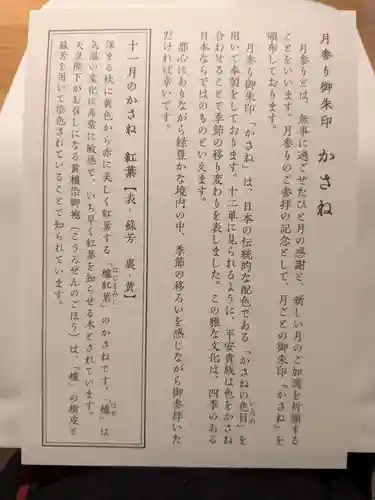 月参り御朱印 かさね
月参りとは、無事に過ごせたひと月の感謝と、新しい月のご加護を祈願する
ことをいいます。月参りのご参拝の記念として、月ごとの御朱印『かさね』を
頒布しております。
月参り御朱印『かさね』は、日本の伝統的な配色である「かさねの色目」を
いろめ
用いて奉製をしております。十二単に見られるように、平安貴族は色をかさね
合わせることで季節の移り変わりを表しました。この雅な文化は、四季のある
日本ならではのものといえます。
都心にありながら緑豊かな境内の中、季節の移ろいを感じながら御参拝いた
だければ幸いです。
十一月のかさね 紅葉【表‐蘇芳 裏‐黄】
深まる秋に黄色から赤に美しく紅葉する「櫨紅葉」のかさねです。「櫨」は
はじもみじ
はぜ
気温の変化に非常に敏感で、いち早く紅葉を知らせる木とされています。
天皇陛下がお召しになる黄櫨染御袍(こうろぜんのごほう)は、「櫨」の樹皮と
蘇芳を用いて染色されていることで知られています。